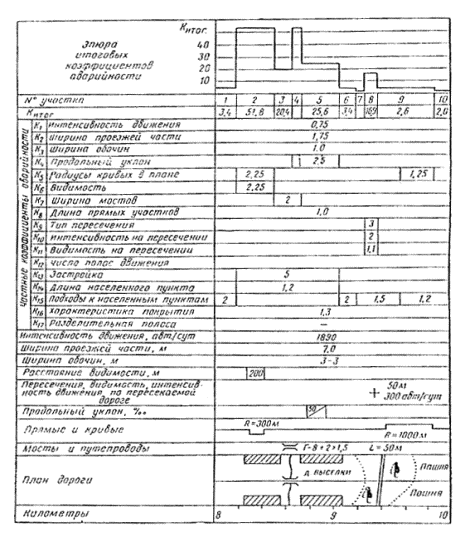 Kитог.
Эпюра
итоговых
коэффициентов
аварийности
40
30
20
10
N° участка 1 2 3 4 5 6 7 8 9 10
Kитог 3,4 51,8 20,4 25,6 3,4 2,6 2,0
частные коэффициенты аварийности
K1 Интенсивность движения 0,75
K2 Ширина проезжей части 1,75
K3 Ширина обочин 1.0
K4 Продольный уклон 2.5
K5 Радиусы кривых в плане 2,25 1,25
K6 Видимость 2,25
K7 Ширина мостов 2
K8 Длина прямых участков 1,0
K9 Тип пересечения 3
K10 интенсивность на пересечении 2
K11 Видимость на пересечении 1,1
K12 число полос движения
K13 Застройка 5
K14 Длина населенного пункта 1,2
K15 Подходы к населенным пунктам 2 2 1,5 1,2
K16 характеристика покрытия 1,3
K17 Разделительная полоса —
Интенсивность движения, авт/сут 1890
Ширина проезжей части, м 7,0
Ширина обочин, м 3-3
Расстояние видимости, м 200
Пересечения, видимость, интенсив-
ность движения, по пересекаемой
дороге
50м
300 авт/сут
Продольный уклон, ‰ 50
Прямые и кривые R=300м R=1000м
Мосты и путепроводы Г-8+2×1,5 L=50м
План дороги д. выселки Пашня
Пашня
Километры 8 9 10